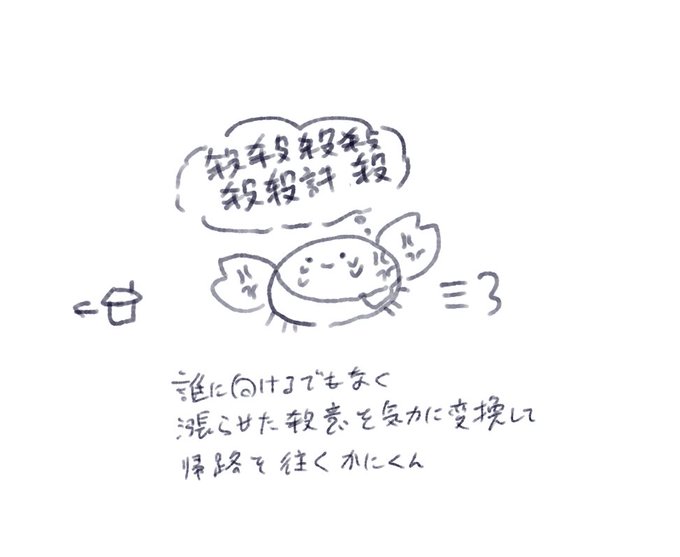 殺殺殺殺
殺殺許殺
誰に向けるでもなく
漲らせた殺意を気力に変換して
帰路を往くかにくん